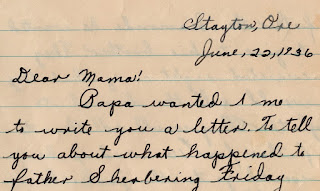 Stayton, Ore
June, 22, 1936
Dear Mama!
Papa wanted me
to write you a letter. To tell
you about what happened to
father Sherbering Friday